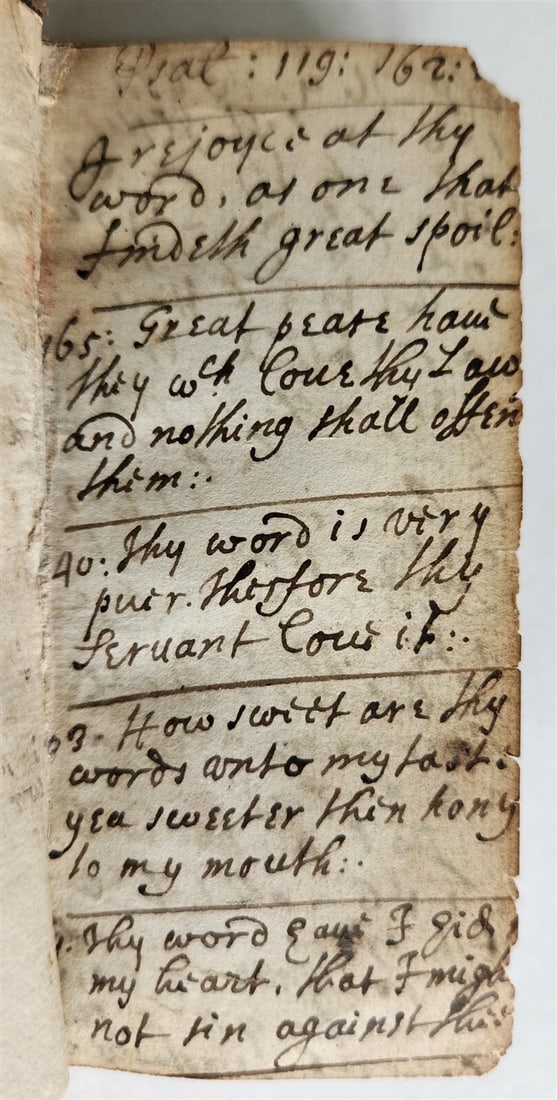 Psal: 119: 162:
I rejoyce at thy
word, as one that
findeth great spoil:
165: Great peace haue
they wch loue thy Law
and nothing shall offen
them:.
40: Thy word is very
puer. therfore thy
servant loue it:.
03. How sweet are thy
words unto my tast:
yea sweeter then hony
to my mouth:.
1: Thy word haue I hid
my heart, that I migh
not sin against thee: